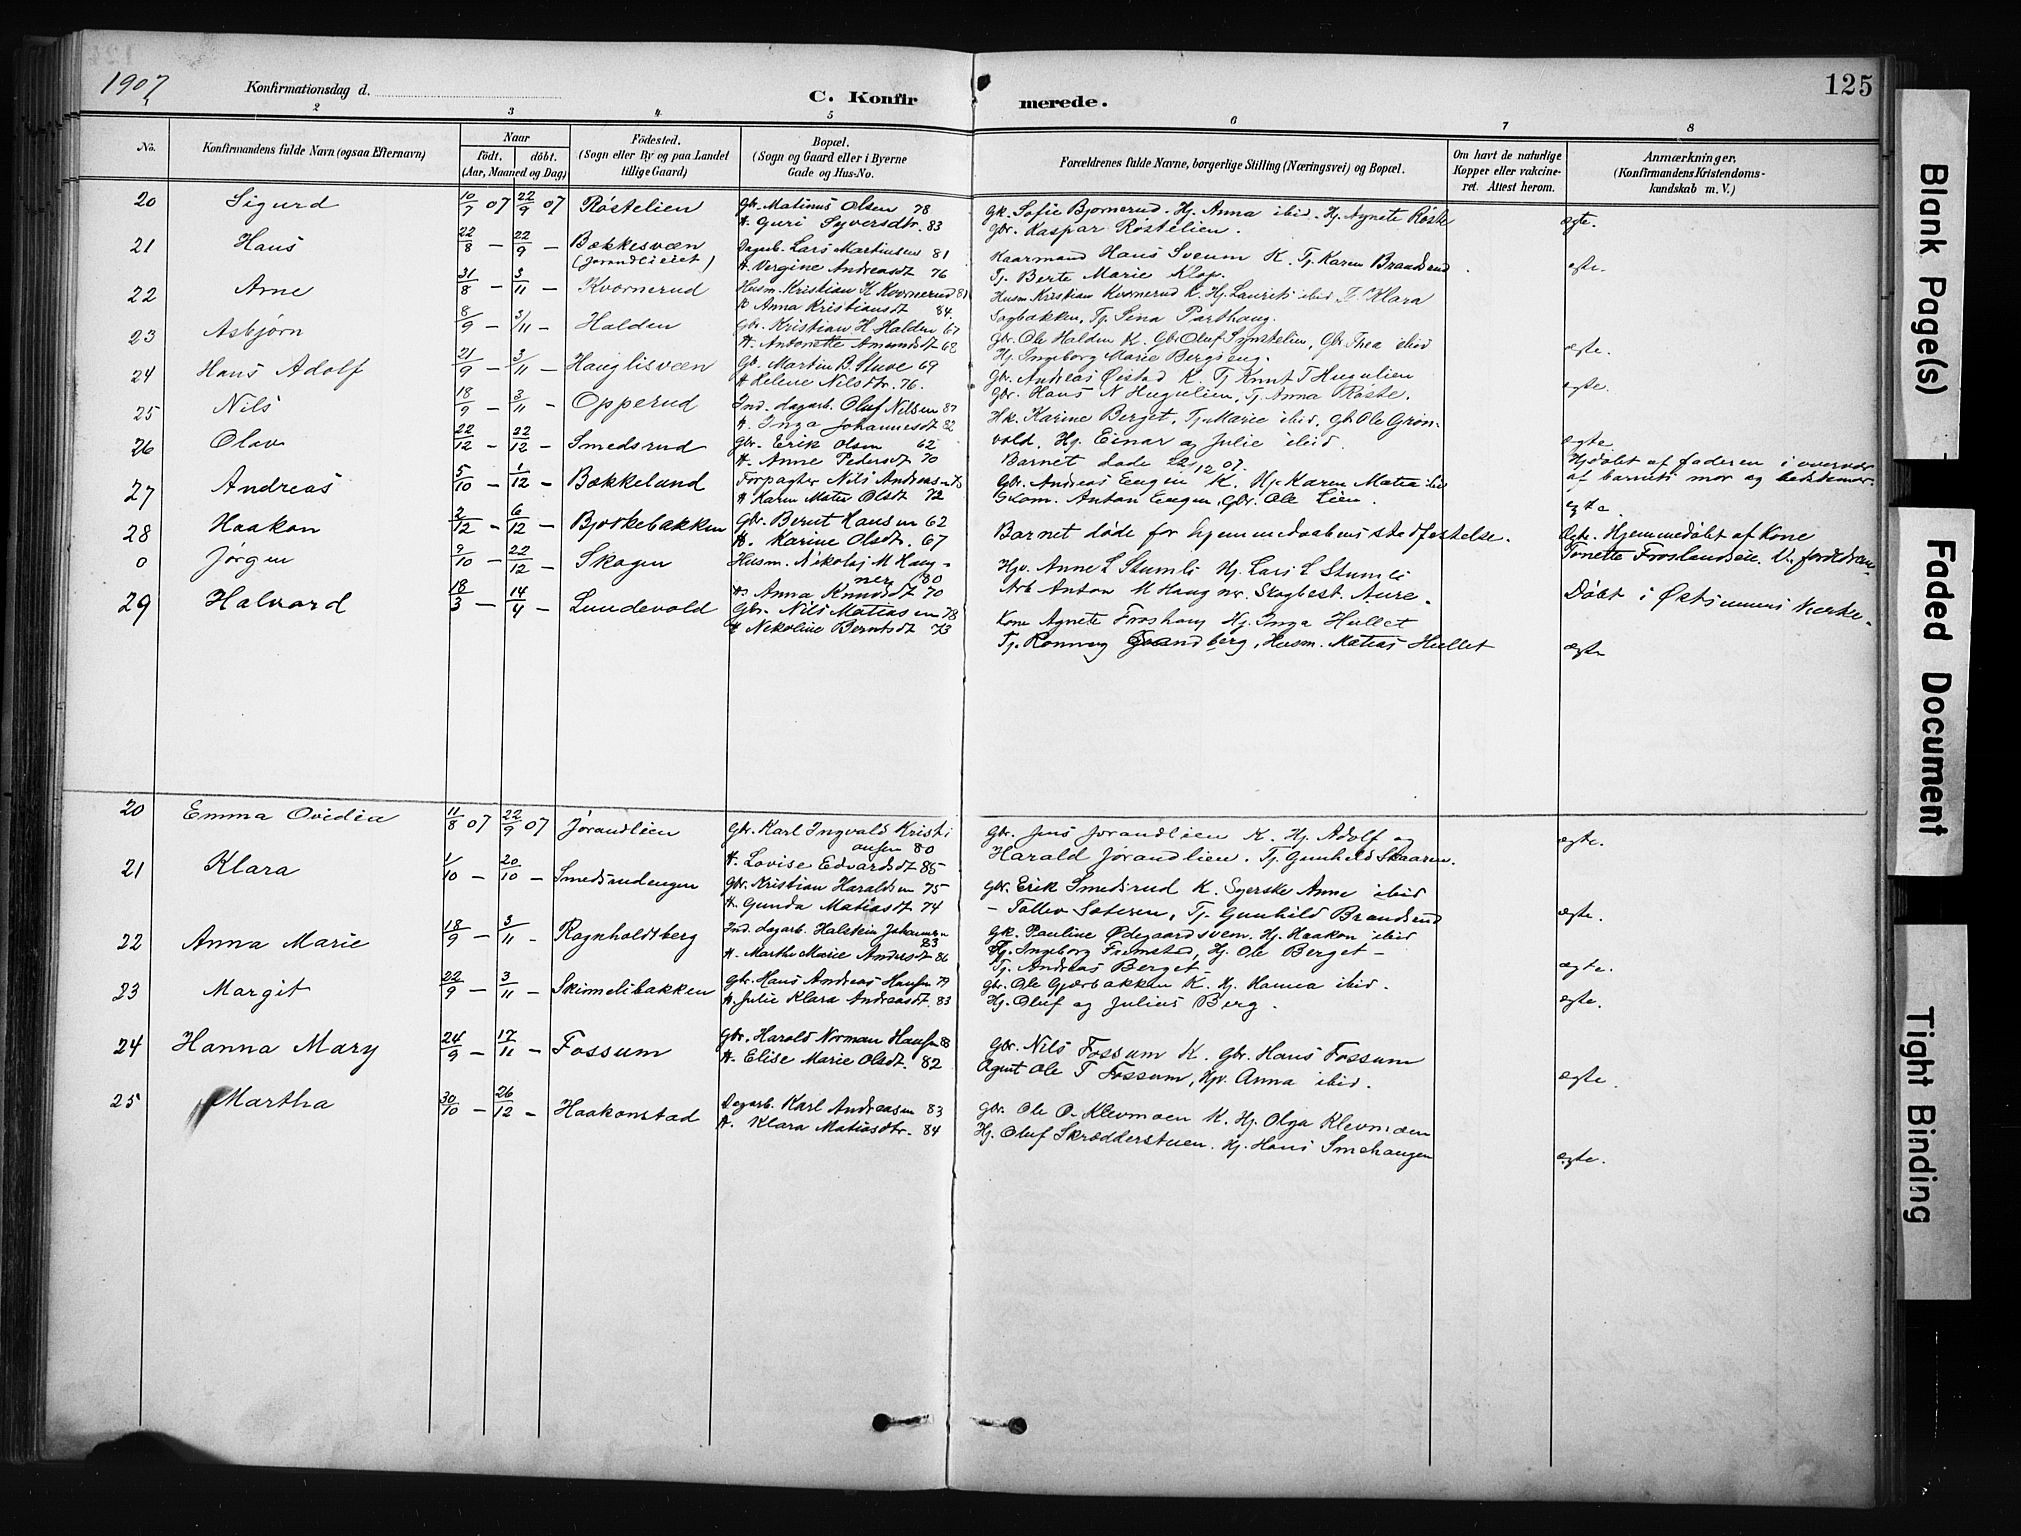 1907
Konfirmationsdag d.
C. Konfir merede.
125
2 3 4 5 6 7 8
No.
Konfirmandens fulde Navn (ogsaa Efternavn)
Naar
födt. döbt.
(Aar, Maaned og Dag)
Födested.
(Sogn eller By og paa Landet
tillige Gaard)
Bopæl.
(Sogn og Gaard eller i Byerne
Gade og Hus-No.
Forældrenes fulde Navne, borgerlige Stilling (Næringsvei) og Bopæl.
Om havt de naturlige
Kopper eller vakcine-
ret. Attest herom.
Anmærkninger.
(Konfirmandens Kristendoms-
kundskab m. V.)
20 Sigurd 10/7 07 22/9 07 Röstelien Gbr. Matinus Olsen 78
H. Guri Syversdtr. 83
Gk. Sofie Bjornerud. Hj. Anna ibid. Hj. Agnete Röste
Gbr. Kaspar Röstelien. ægte.
21 Hans 22/8 – 22/9 – Bækkesvæn
(Jorandlieiet)
Dagarb. Lars Martinsen 81
H. Vergine Andreasdt 76
Kaarmand Hans Sveum K. Tj. Karen Brandsrud
Tj. Berte Marie Klop. ægte.
22 Arne 31/8 – 3/11 – Kvornerud Husm. Kristian K. Kvornerud 81
H. Anna Kristiansdt 84.
Husm. Kristian Kvornerud K. Hj. Laurits ibid Klara
Sagbakken, Tj. Sina Parthaug.
23 Asbjörn 8/9 – 3/11 – Halden Gbr. Kristian H Halden 67
H. Antonette Amundsdt 62
Gbr. Ole Halden K. Gbr. Oluf Synstelien, Gbr. Thea ibid
Hj. Ingeborg Marie Bergseng. ægte.
24 Hans Adolf 21/9 – 3/11 – Hauglisvæen Gbr. Martin B. Stuve 69
H. Helene Nilsdtr. 76.
Gbr. Andreas Öistad K. Tj Knut T Hugulien
Gbr. Hans N Hugulien, Tj. Anna Röste. ægte.
25 Nils 18/9 – 3/11 – Opperud Ind. dagarb. Oluf Nilsen 87
H. Inga Johannesdt 82
Hk. Karine Berget, Tj. Marie ibid, Gbr. Ole Grön-
vold, Hj. Einar og Julie ibid. ægte
26 Olav 22/12 – 22/12 – Smedsrud Gbr. Erik Olsen 62
H. Anne Pedersdt 70
Barnet döde 22/12 07.
Hjdöbt af faderen i overvær
af barnets mor og bedstemor.
27 Andreas 5/10 – 1/12 – Bækkeland Forpagter Nils Andreasen 73
H Karen Matea Olsdt 72
Gbr. Andreas Engen K. Hj. Karen Matea ibid
Skom. Anton Engen, Gbr. Ole Lien. ægte.
28 Haakon 2/12 – 6/12 – Bjerkebakken Gbr. Bernt Hansen 62
H. Karine Olsdtr. 67
Barnet döde for hjemmedaabens stadfestelse.
Hjemmedöbt af Kone
0 Jörgen 9/10 – 22/12 – Skogen Husm. Nikolaj M Haug-
ner 80
H. Anna Knudsdt 70
Hjv. Anne L Stumli Hj. Lars L Stumli
Arb Anton M Haugner. Skogbest. Aure.
29 Halvard 18/3 – 14/4 – Lundevold Gbr. Nils Matiasen 78
H Nekoline Berntsdt 73
Kone Agnete Froshaug Hj. Inga Hullet
Tj. Ronnaug Grandberg, Husm. Matias Hullet
Döbt i Östsinnens Kirke.
ægte
20 Emma Ovidia 11/8 07 22/9 07 Jörandlien Gbr. Karl Ingvald Kristi
ansen 80
H. Lovise Edvardsdt 85
Gbr. Jens Jorandlien K. Hj. Adolf og
Harald Jörandlien. Tj. Gunhild Skaaren. ægte.
21 Klara 1/10 – 20/10 – Smedsrudengen Gbr. Kristian Haraldsen 75
H. Gunda Matiasdt 74
Gbr. Erik Smedsrud K. Syerske Anne ibid
– Tollev Sæteren, Tj. Gunhild Brandsrud ægte.
22 Anna Marie 18/9 – 3/11 – Ragnholdtsberg Ind. dagarb. Halstein Johannsen
83
H. Marthe Marie Andersdt 86
Gk. Pauline Ödegaardsvem. Hj. Haakon ibid
Tj. Ingeborg Fremstad, Hj. Ole Berget –
Tj. Andreas Berget – ægte.
23 Margit 22/9 – 3/11 – Skiömelibakken Gbr. Hans Andreas Hansen 79
H. Julie Klara Andreasdt. 83
Gbr. Ole Gjærbakken K. Hj. Hanna ibid.
Hj. Oluf og Julius Berg. ægte.
24 Hanna Mary 24/9 – 17/11 – Fossum Gbr. Harald Norman Hansen 88
H. Elise Marie Olsdt. 82
Gbr. Nils Fossum K. Gbr. Hans Fossum
Agent Ole T Fossum, Hjv. Anna ibid. ægte.
25 Martha 30/10 – 26/12 – Haakonstad Dagarb. Karl Andreasen 83
H. Klara Matiasdtr. 84
Gbr. Ole O. Klevmoen K. Hj. Olga Klevmoen
Hj. Oluf Skrædderstuen. Hj. Hans Smehaugen
ægte.
Blank Page(s)
Faded Document
Tight Binding